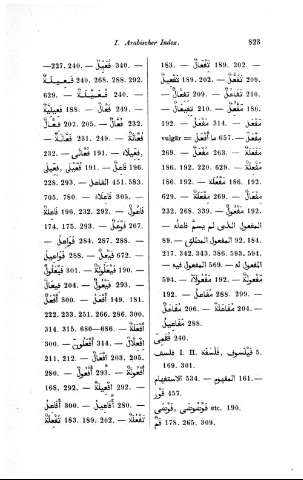 I. Arabischer Index. 823
—227. 240. فَعِيلٌ — 340. —
240. 268. 288. 292. فَعِيلَةٌ
629. — فَعِيلَةٌ 240. —
فُعَيْلِيَّةٌ 188. فَعَالٌ 249. —
فُعَالٌ 202. 205. فَعَّالٌ 232. —
فَعَالَةٌ 231. 249. فَعَّالَةٌ —
232. — فَعَالَى 191. فَعِيلاء,
فَعِيلَى, فُعَيْلَى 191. فَاعِلٌ 196.
228. 293. الفاعل 451. 583.
705. 780. فَاعِلاء 305. —
فَاعِلَةٌ 196. 232. 292. فَاعُولٌ —
174. 175. 293. فَوْعَلٌ 267.
فَوَاعِلُ 284. 287. 288. —
فَوَاعِيلُ 288. فَيْعَلٌ 672. —
فَيْعَلُولٌ 301. فَيْعَلُولَةٌ 190. —
فَيْعَالٌ 204. فَيْعُولٌ 293. —
أَفْعَلُ 300. أَفْعَلُ 149. 181.
222. 233. 251. 266. 286. 300.
314. 315. 680—686. أَفْعَلَةٌ
300. — أَفْعَلُونَ 314. إِفْعِلَالٌ
211. 212. — أَفْعَالٌ 203. 205.
280. — أُفْعُولٌ 293. أُفْعُولَةٌ
168. 292. — أَفْعِيلَةٌ 292. —
أَفَاعِلُ 300. أَفَاعِيلُ 280. —
تَفْعِلَةٌ 183. 189. 202. تَفْعُلَةٌ
183. — تَفْعَالٌ 189. 202. —
تَفْعِيلٌ 189. 202. — تَفَعُّلٌ 209.
تِفِعَّالٌ 209. — تَفَاعُلٌ 210.
تِفِيعَالٌ 210. — مَفْعَلٌ 186.
192. — مُفْعَلٌ 314. مَفْعِلٌ
vulgär = مَا أَفْعَلَ 657. — مِفْعَلٌ
269. — مُفْعَلٌ 263. مَفْعَلَةٌ
186. 192. 220. 629. مَفْعِلَةٌ
186. مَفْعُلَةٌ 186. 192.
مِفْعَلَةٌ 269. — مِفْعَالٌ
232. 268. 339. — مَفْعُولٌ 192.
المفعول الّذى لم يسمّ فاعله —
92. 184. المفعول المطلق 89.
217. 342. 343. 386. 583. 594.
المفعول له 569. المفعول فيه —
594. — مَفْعُولَاءُ 192. مَفْعُولَةٌ
192. — مَفَاعِلُ 288. 299. —
مُفَاعَلٌ 206. مُفَاعَلَةٌ 204. —
مَفَاعِيلُ 288.
فقمى 240.
فلسف I. II. فَيْلَسُوفٌ, فَلْسَفَةٌ 5.
169. 301.
المفهوم 161. — الاستفهام 534.
فور 457.
فَوْضُوضَى, فَوْضَى etc. 190.
فَمٌ 178. 265. 309.